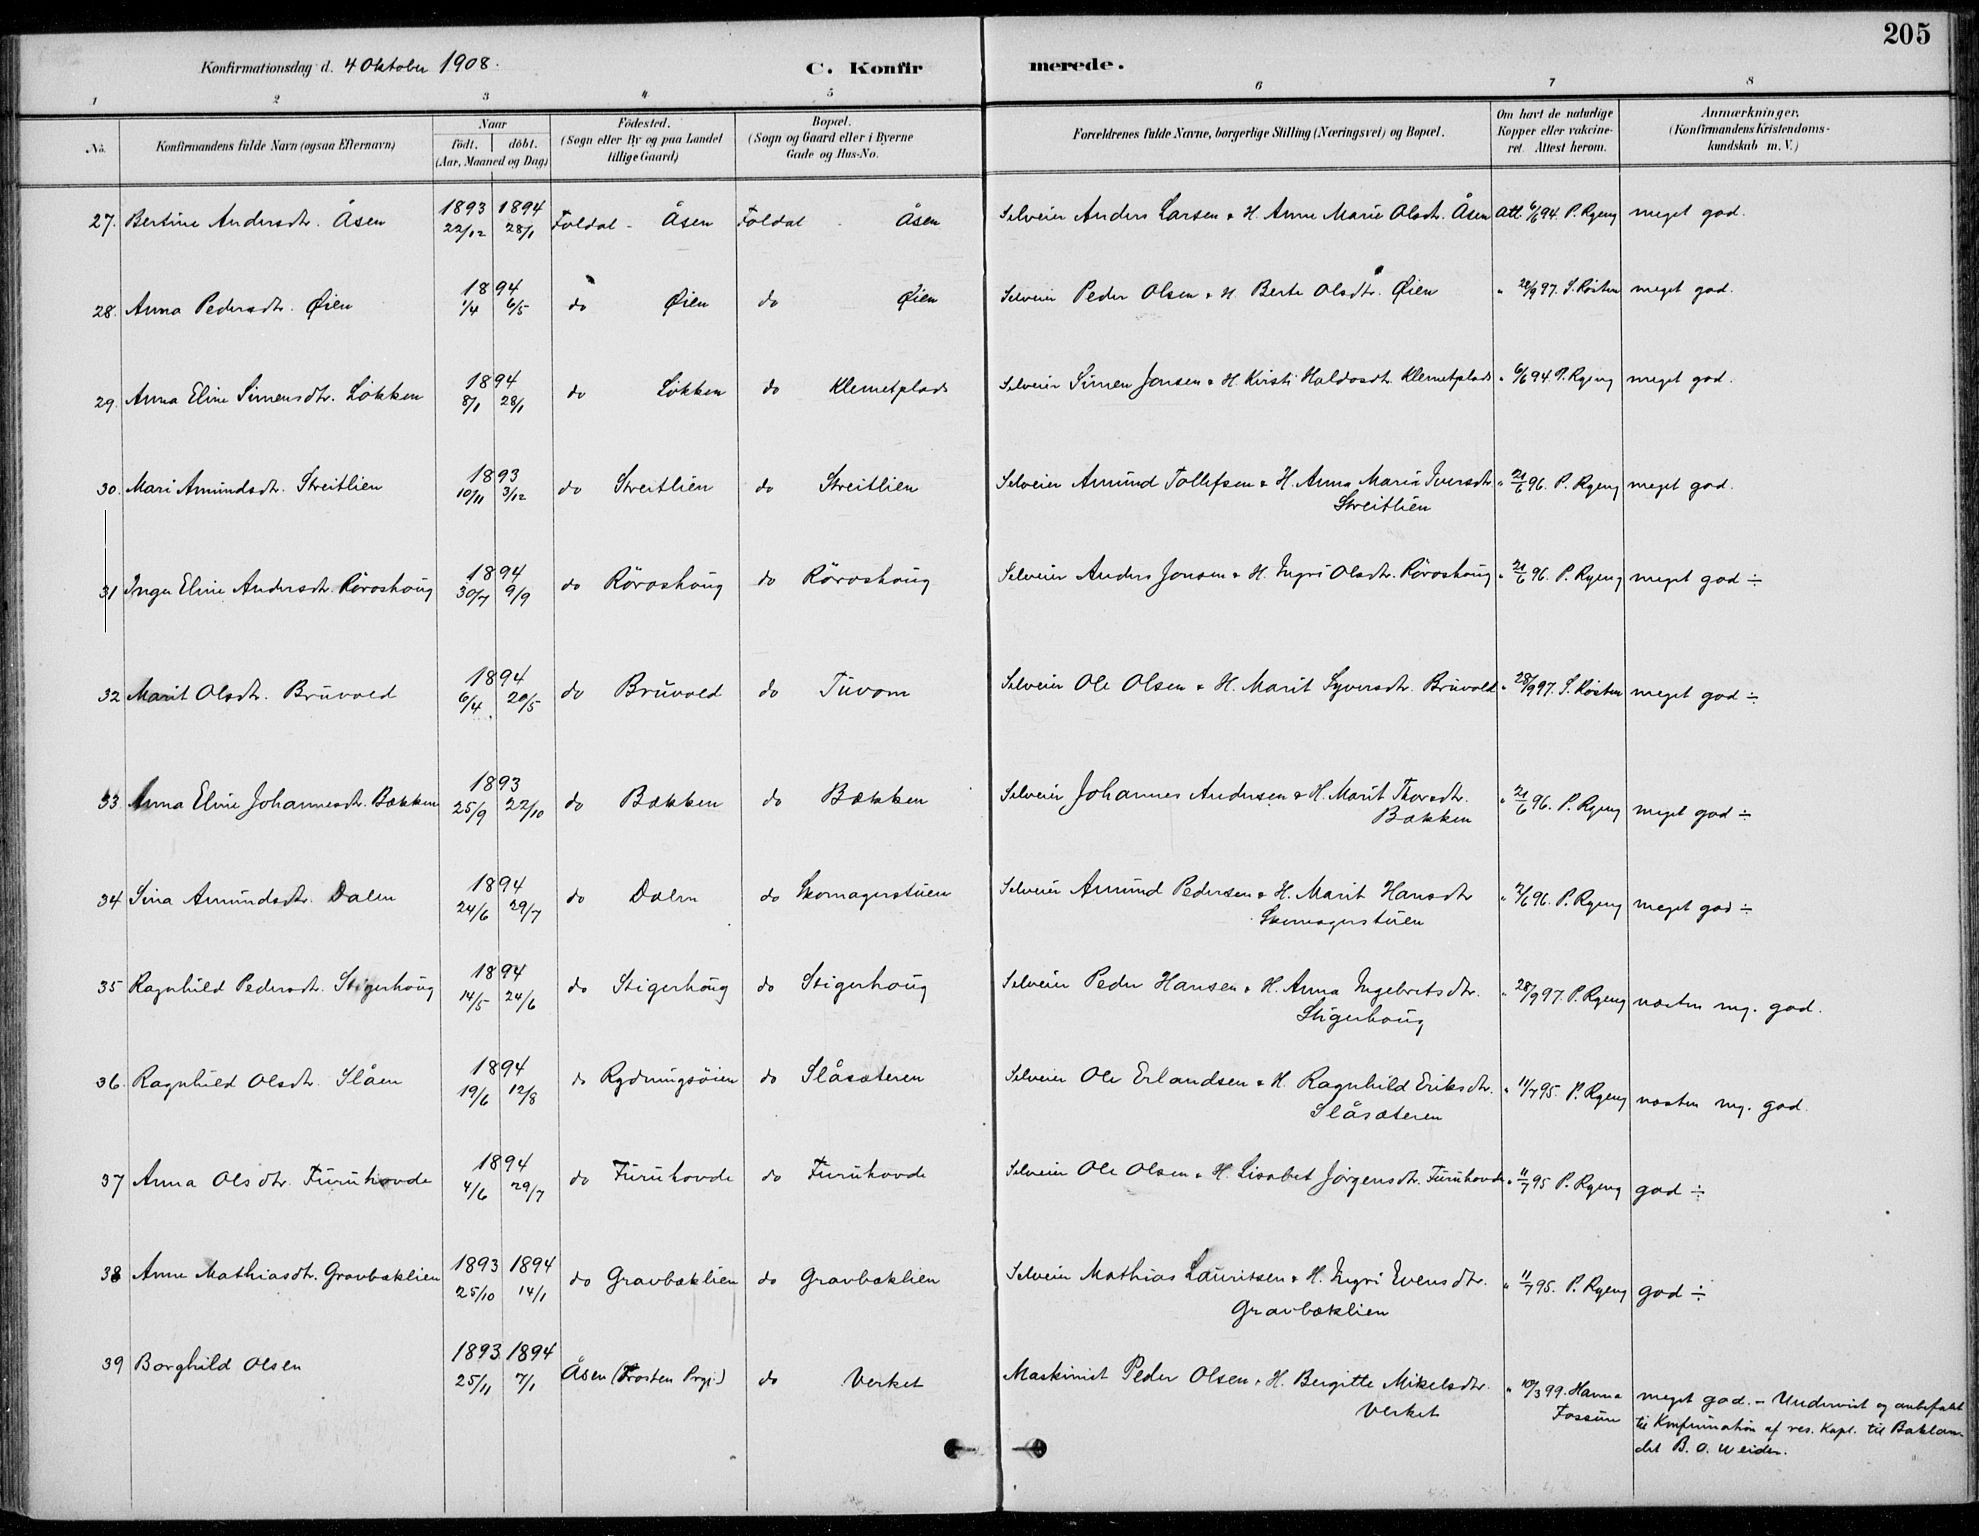 205
Konfirmationsdag d. 4 Oktober 1908.
C. Konfirmerede.
1 2 3 4 5 6 7 8
No.
Konfirmandens fulde Navn (ogsaa Efternavn)
Naar
født. døbt.
(Aar, Maaned og Dag)
Födested.
(Sogn eller By og paa Landet
tillige Gaard)
Bopæl.
(Sogn og Gaard eller i Byerne
Gade og Hus-No.
Forældrenes fulde Navne, borgerlige Stilling (Næringsvei) og Bopæl.
Om havt de naturlige
Kopper eller vakcine-
ret. Attest herom.
Anmærkninger.
(Konfirmandens Kristendoms-
kundskab m. V.)
27. Bertine Andersdtr. Åsen 1893 22/12 1894 28/1 Foldal - Åsen Foldal - Åsen Selveier Anders Larsen & H. Anne Marie Olsdtr. Åsen Att. 6/6 94. P. Ryeng meget god.
28. Anna Pedersdtr. Øien 1894 1/4 6/5 do Øien do Øien Selveier Peder Olsen & H. Berte Olsdtr. Øien " 28/9 97. S. Kösten meget god.
29. Anna Eline Simensdtr. Løkken 1894 8/1 28/1 do Løkken do Klemetplads Selveier Simen Jonsen & H. Kirsti Haldosdtr. Klemetplads " 6/6 94 P. Ryeng meget god.
30. Mari Amundsdtr. Streitlien 1893 10/11 3/12 do Streitlien do Streitlien Selveier Amund Tollefsen & H. Anna Maria Iversdtr. " 21/6 96. P. Ryeng meget god.
Streitlien
31 Inga Eline Andersdtr. Röroshoug 1894 30/7 9/9 do Röroshoug do Röroshoug Selveier Anders Jonsen & H. Ingri Olsdtr. Röroshoug " 21/6 96. P. Ryeng meget god ÷
32 Marit Olsdtr. Bruvold 1894 6/4 20/5 do Bruvold do Tuvom Selveier Ole Olsen & H. Marit Syversdtr. Bruvold " 28/9 97. S. Kösten meget god ÷
33 Anna Eline Johannesdtr. Bækken 1893 25/9 22/10 do Bækken do Bækken Selveier Johannes Andersen & H. Marit Thorsdtr. " 21/6 96. P. Ryeng meget god ÷
Bækken
34 Sina Amundsdtr. Dalen 1894 24/6 29/7 do Dalen do Skomagerstuen Selveier Amund Pedersen & H. Marit Hansdtr " 21/6 96. P. Ryeng meget god ÷
Skomagerstuen
35 Ragnhild Pedersdtr. Stigerhoug 1894 14/5 24/6 do Stigerhoug do Stigerhoug Selveier Peder Hansen & H. Anna Ingebretsdtr. " 28/9 97. P. Ryeng næsten mg. god.
Stigerhoug
36. Ragnhild Olsdtr. Slåen 1894 19/6 12/8 do Rydningsøien do Slåsæteren Selveier Ole Erlandsen & H. Ragnhild Eriksdtr. " 11/7 95. P. Ryeng næsten mg. god.
Slåsæteren
37 Anna Olsdtr. Furuhovde 1894 4/6 29/7 do Furuhovde do Furuhovde Selveier Ole Olsen & H. Lisabet Jörgensdtr. Furuhovde " 11/7 95 P. Ryeng god ÷
38 Anne Mathiasdtr. Gravbæklien 1893 25/10 1894 14/1 do Gravbæklien do Gravbæklien Selveier Mathias Lauritsen & H. Ingri Evensdtr. " 11/7 95. P. Ryeng god ÷
Gravbæklien
39 Borghild Olsen 1893 25/11 1894 7/1 Åsen (Frosten Prgj.) do Verket Maskinist Peder Olsen & H. Bergitte Mikelsdtr. " 10/3 99. Hanna meget god. - Undervist og anbefalt
Verket Fossum til Konfirmation af res. Kapl. til Baklan-
det B. O. Weider.